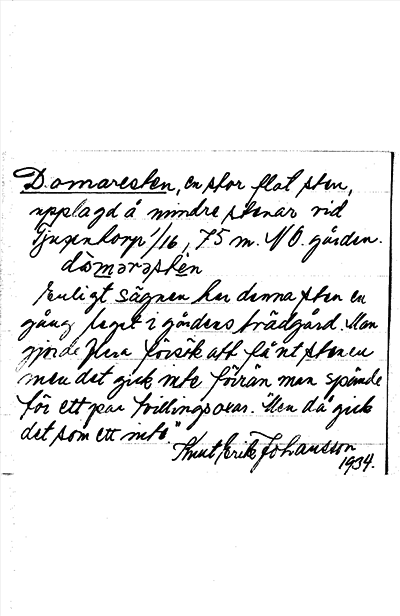 Domaresten, en stor flat sten,
upplagd å mindre stenar vid
1/16, 75 m. NO. gården.
dòmarəstèn
Enligt sägnen har denna sten en
gång legat i gårdens trädgård. Man
gjorde flera försök att få ut stenen
men det gick inte förrän man spände
för ett par tvillingsoxar. "Men då gick
det som ett intet."
Knut Erik Johansson
1934.